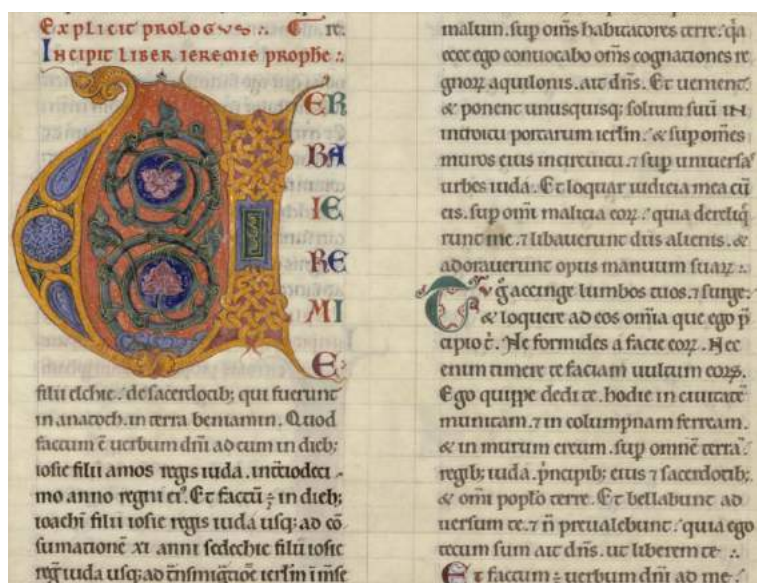 Explicit prologus ∴ Gre.
Incipit liber ieremie prophe ∴
VER
BA
IE
RE
MI
E
filii elchie. de sacerdotib; qui fuerunt
in anatoth. in terra beniamin. Quod
factum ē uerbum dn̄i ad eum in dieb;
iosie filii amos regis iuda. in t̄ciodeci
mo anno regni ei᷒. Et factū ÷ in dieb;
ioachī filii iosie regis iuda usq; ad cō
sumationē xi anni sedechie filii iosie
reḡ iuda usq; ad t̄nsmiḡtiōē ierl̄m ī m̄se
malum. sup om̄s habitatores terre. q̄a
ecce ego conuocabo om̄s cognationes re
gnoꝝ aquilonis. ait dn̄s. Et uenient
& ponent unusquisq; solium suū in
introitu portarum ierl̄m. & sup om̄es
muros eius in circuitu. ⁊ sup uniuersas
urbes iuda. Et loquar iudicia mea cū
eis. sup om̄i malicia eoꝝ. quia dereliq̄
runt me. ⁊ libauerunt diis alienis. &
adorauerunt opus manuum suaꝝ ∴
Tu g̊ accinge lumbos tuos. ⁊ surge.
& loquere ad eos om̄ia que ego p̄
cipio t̄. Ne formides a facie eoꝝ. Nec
enim timere te faciam uultum eoꝝ.
Ego quippe dedi te. hodie in ciuitatē
munitam. ⁊ in columpnam ferream.
& in murum ereum. sup omnē terrā.
regib; iuda. p̄ncipib; eius ⁊ sacerdotib;
& om̄i poplo terre. Et bellabunt ad
uersum te. ⁊ n̄ preualebunt. quia ego
tecum sum ait dn̄s. ut liberem te ∴
Et factum ÷ uerbum dn̄i ad me.